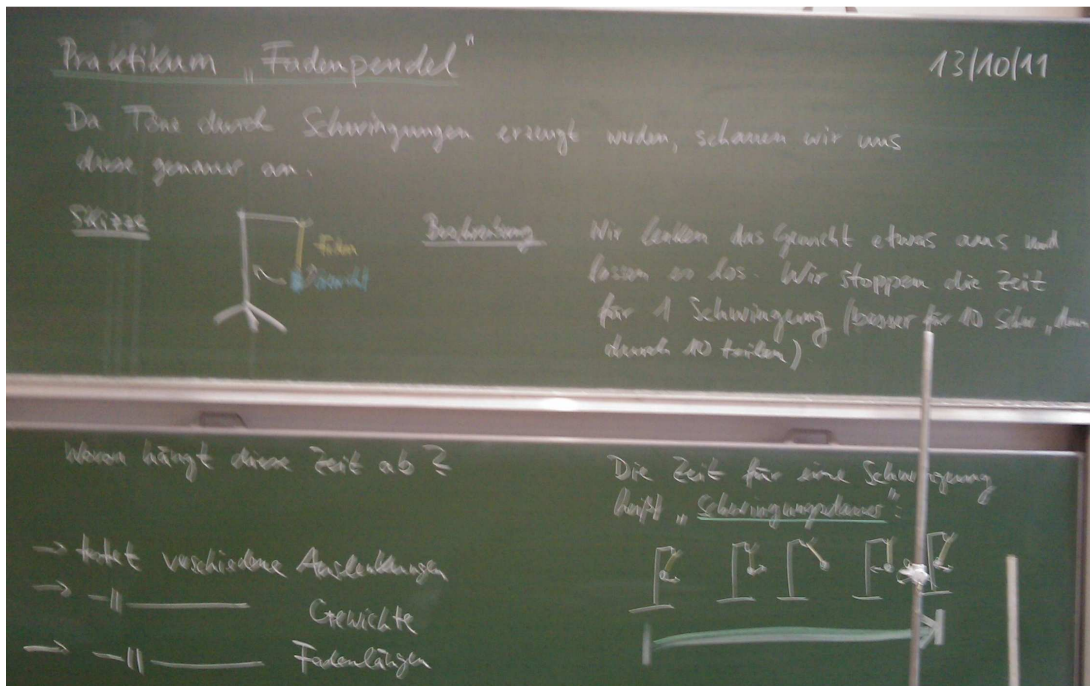 Praktikum „Fadenpendel"
13/10/11
Da Töne durch Schwingungen erzeugt werden, schauen wir uns
diese genauer an.
Skizze
Faden
Gewicht
Beschreibung
Wir lenken das Gewicht etwas aus und
lassen es los. Wir stoppen die Zeit
für 1 Schwingung (besser für 10 Schw, dann
durch 10 teilen)
Wovon hängt diese Zeit ab?
→ testet verschiedene Auslenkungen
→ –||– Gewichte
→ –||– Fadenlängen
Die Zeit für eine Schwingung
heißt „Schwingungsdauer":